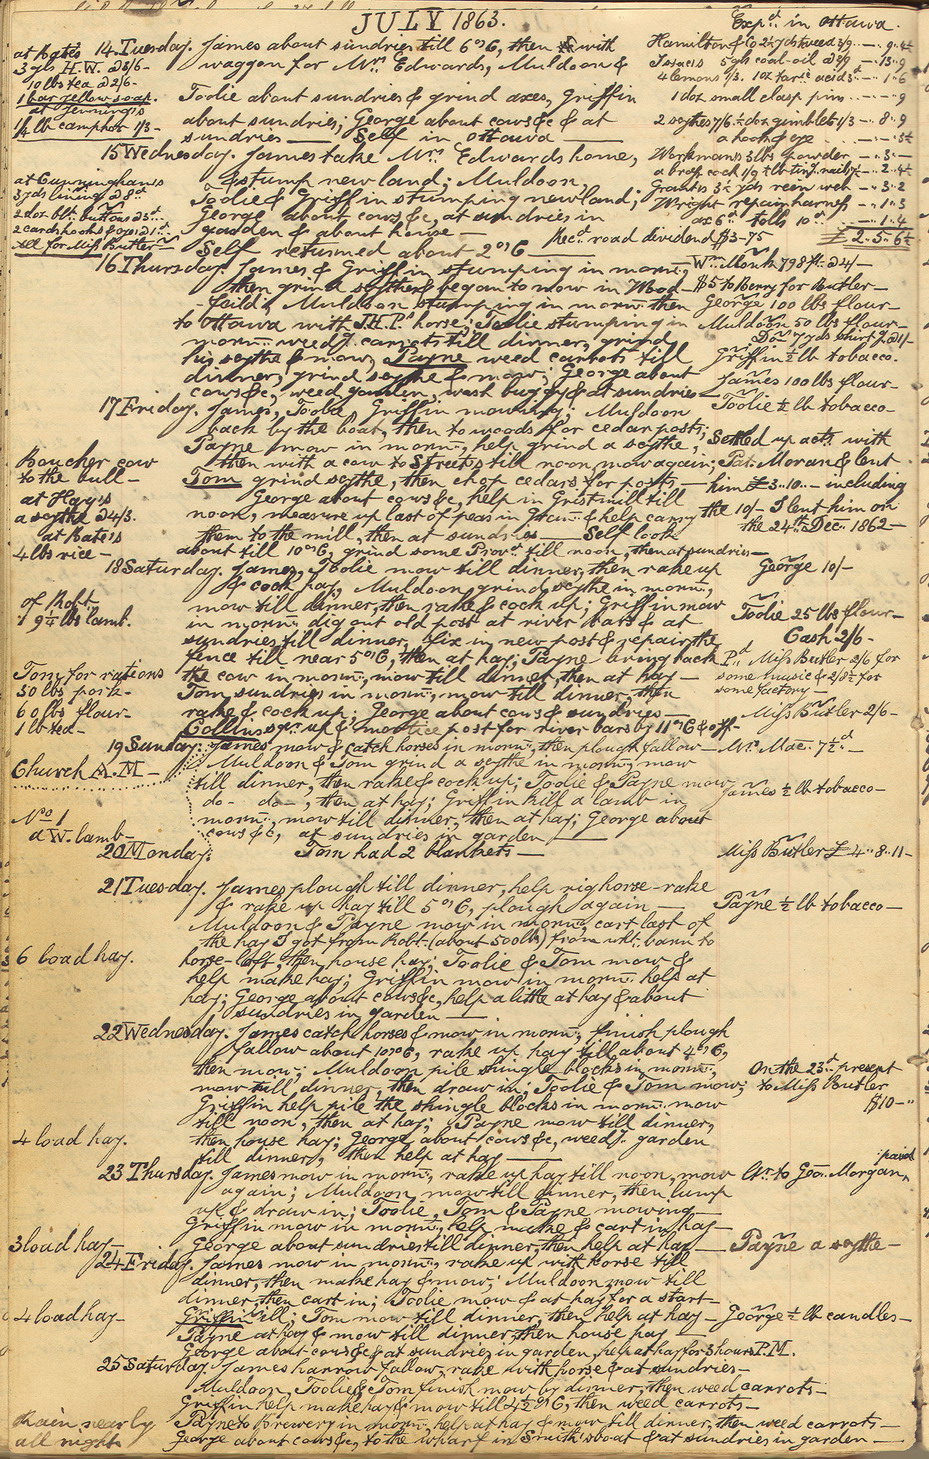 JULY 1863.
Exp.d in Ottawa.
at Bate's
3 yds H.W. @5/6-
10 lbs tea @2/6-
1 bar yellow soap.
at Jenning's
1/4 lb camphor 1/3-
14 Tuesday. James about sundries till 6 o'C, then with
waggon for Mrs. Edwards, Muldoon &
Toolie about sundries & grind axes, Griffin
about sundries; George about cows &c & at
sundries — Self in Ottawa —
Hamilton & Co 2 1/2 yds tweed 3/9
5 gls coal-oil
4 lemons 1/3. 1 oz tart. acid 3d - 1.6
1 doz small clasp pins - 9
2 scythes 7/6. 1/2 doz gimblets 1/3 - 8.9
a hook & eye
15 Wednesday. James take Mrs. Edwards home,
& stump new land; Muldoon,
Toolie & Griffin stumping new land;
George about cows &c, at sundries in
garden & about house —
Self returned about 2 o'C
Workman's 3 lbs powder - 3 -
Grant's
Wright repair harness - 1.3
tolls 10d - 1.4
£ 2.5.6 1/2
Rec.d road dividend $3-75
at Cunningham's
3 yds lining
2 doz blk buttons
2 cards hooks & eyes
All for Miss Butler
16 Thursday. James & Griffin stumping in morn.,
then grind scythes & began to mow in Wood-
-field; Muldoon stumping in morn. then
to Ottawa with J.H.P.'s horse; Toolie stumping in
morn. weed carrots till dinner, grind
his scythe & mow; Payne weed carrots till
dinner, grind scythe & mow; George about
cows &c, weed garden, wash buggy & at sundries —
Wm. Monk 798 ft. @4/-
$5 to Berry for Butler -
George 100 lbs flour -
Muldoon 50 lbs flour -
Do. 7 yds shirt'g @1/-
Griffin 1/2 lb tobacco.
James 100 lbs flour -
Toolie 1/2 lb tobacco -
17 Friday. James, Toolie, Griffin mowing; Muldoon
back by the boat, then to woods for cedar posts;
Payne mow in morn., help grind a scythe,
then with a cow to Street's till noon, mow again;
Tom grind scythe, then chop cedars for posts, —
George about cows &c, help in Gristmill till
noon, measure up last of peas in & help carry
them to the mill, then at sundries — Self look
about till 10 o'C, grind some Prov.r till noon, then at sundries —
Settled up act. with
Pat. Moran & lent
him £3.10.- including
the 10/- I lent him on
the 24th Dec. 1862 -
Boucher cow
to the bull -
at Hay's
a scythe @4/3.
at Bate's
4 lbs rice -
18 Saturday. James, Toolie mow till dinner, then rake up
& cock hay, Muldoon grind scythe in morn.,
mow till dinner, then rake & cock up; Griffin mow
in morn. dig out old post at river bars & at
sundries till dinner, fix in new post & repair the
fence till near 5 o'C, then at hay; Payne bring back
the cow in morn., mow till dinner, then at hay —
Tom sundries in morn., mow till dinner, then
rake & cock up; George about cows & sundries —
Collins sq.r up & mortice post for river bars by 11 o'C & off -
George 10/-
Toolie 25 lbs flour -
Cash 2/6 -
P.d Miss Butler 2/6 for
some music & 2/8 1/2 for
some factory -
Miss Butler 2/6 -
of Robt.
9 1/2 lbs lamb.
Tom for rations
50 lbs pork -
60 lbs flour -
1 lb tea -
19 Sunday.
Church A.M -
James mow & catch horses in morn., then plough fallow —
Muldoon & Tom grind a scythe in morn., mow
till dinner, then rake & cock up; Toolie & Payne mow
do- do-, then at hay; Griffin kill a lamb in
morn., mow till dinner, then at hay; George about
cows &c, at sundries in garden —
Mr. Mac. 7 1/2 d -
James 1/2 lb tobacco -
No 1
a W. lamb -
20 Monday. Tom had 2 blankets —
Miss Butler £4..8.11-
21 Tuesday. James plough till dinner, help rig horse-rake
& rake up hay till 5 o'C, plough again —
Muldoon & Payne mow in morn., cart last of
the hay I got from Robt. (about 500 lbs) from wht. barn to
horse-loft, then house hay; Toolie & Tom mow &
help make hay; Griffin mow in morn. help at
hay; George about cows &c, help a little at hay & about
sundries in garden —
Payne 1/2 lb tobacco —
6 load hay.
22 Wednesday. James catch horses & mow in morn., finish plough
fallow about 10 o'C, rake up hay till about 4 o'C,
then mow; Muldoon pile shingle blocks in morn.,
mow till dinner, then draw in; Toolie & Tom mow;
Griffin help pile the shingle blocks in morn. mow
till noon, then at hay; Payne mow till dinner,
then house hay; George about cows &c, weed garden
till dinner, then help at hay —
On the 23d present
to Miss Butler
$10 -"
4 load hay.
23 Thursday. James mow in morn., rake up hay till noon, mow
again; Muldoon mow till dinner, then
up & draw in; Toolie, Tom & Payne mowing —
Griffin mow in morn., help make & cart in hay —
George about sundries till dinner, then help at hay —
to Geo. Morgan,
3 load hay -
Payne a scythe -
24 Friday. James mow in morn., rake up with horse till
dinner, then make hay & mow; Muldoon mow till
dinner, then cart in; Toolie mow & at hay for a start —
Griffin ill; Tom mow till dinner, then help at hay —
Payne at hay & mow till dinner, then house hay —
George about cows &c & at sundries in garden, help at hay for 3 hours P.M.
George 1/2 lb candles -
4 load hay -
25 Saturday. James harrow fallow, rake with horse & at sundries —
Muldoon, Toolie & Tom finish mow by dinner, then weed carrots —
Griffin help make hay & mow till 4 1/2 o'C, then weed carrots —
Payne to Brewery in morn., help at hay & mow till dinner, then weed carrots —
George about cows &c, to the wharf in Smith's boat & at sundries in garden —
Rain nearly
all night